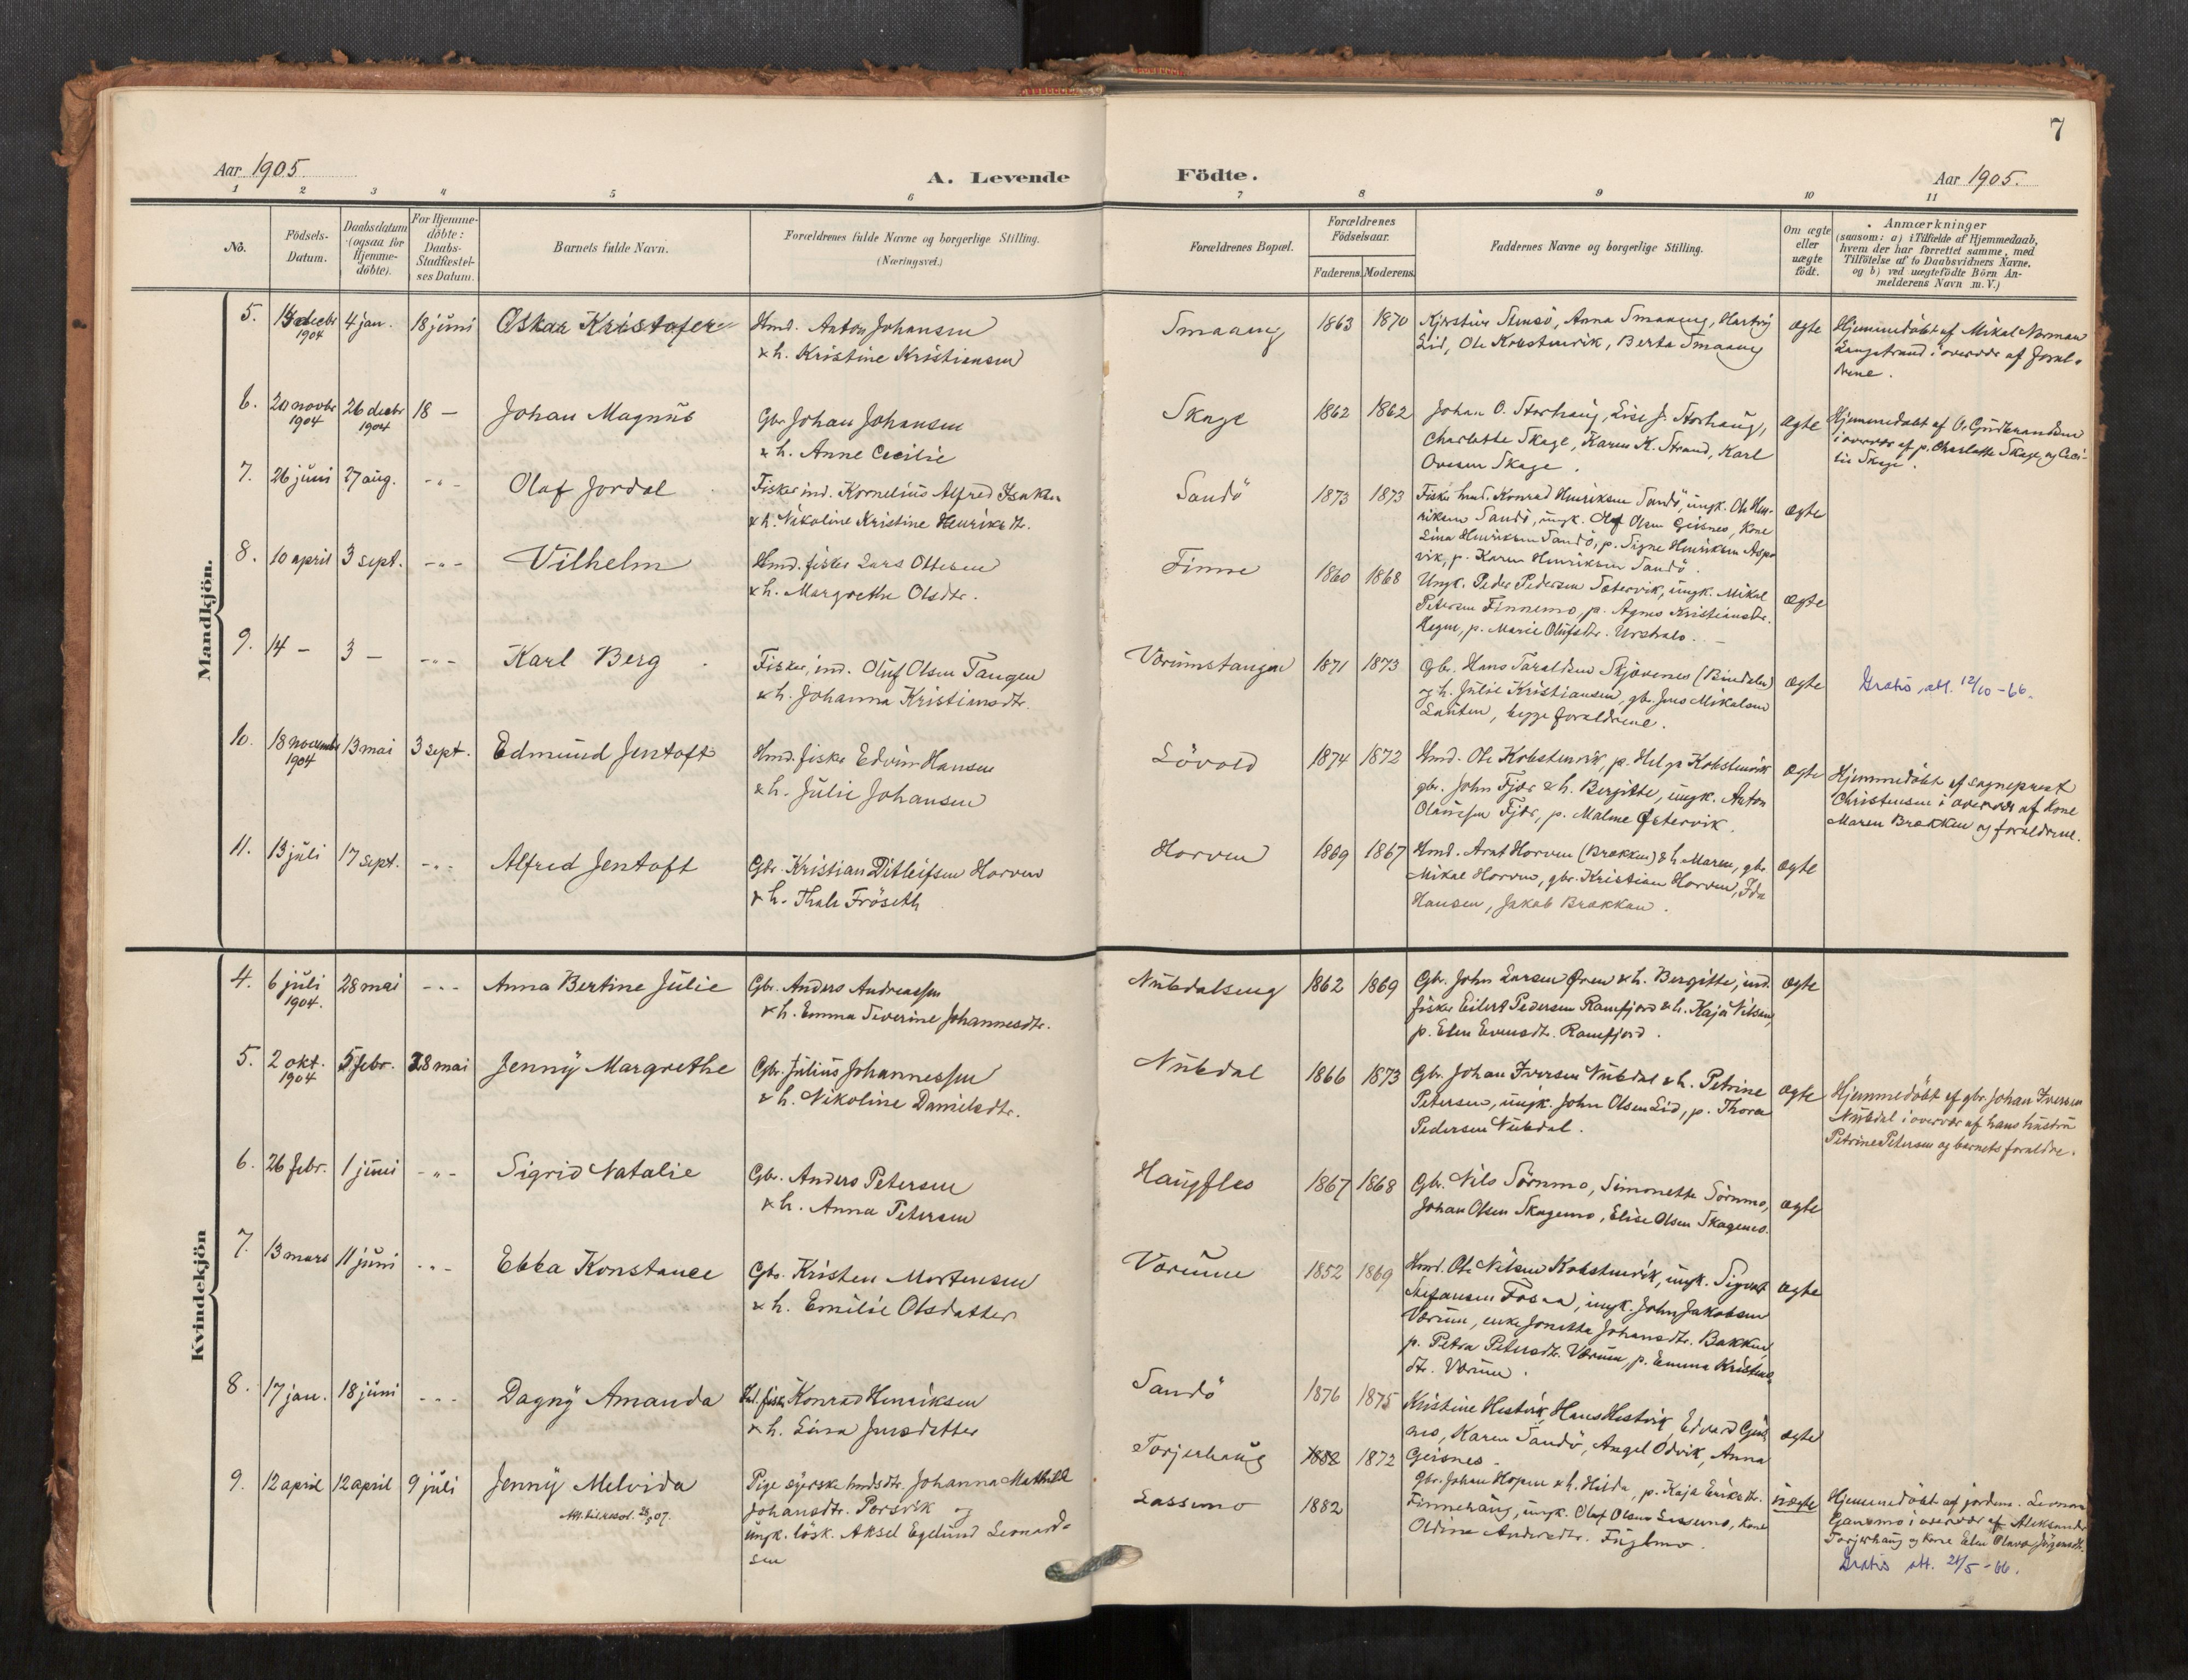 7
Aar 1905.
A. Levende Födte.
Aar 1905.
1 2 3 4 5 6 7 8 9 10 11
No.
Födsels-Datum.
Daabsdatum (ogsaa for Hjemme-döbte).
For Hjemme-döbte: Daabs-Stadfæstel-ses Datum.
Barnets fulde Navn.
Forældrenes fulde Navne og borgerlige Stilling. (Næringsvei.)
Forældrenes Bopæl.
Forældrenes Födselsaar.
Faderens. Moderens.
Faddernes Navne og borgerlige Stilling.
Om ægte eller uægte födt.
Anmærkninger
(saasom: a) i Tilfælde af Hjemmedaab,
hvem der har forrettet samme, med
Tilföielse af to Daabsvidners Navne.
og b) ved uægtefödte Börn An-
melderens Navn m. V.)
Mandkjön.
5. decbr 1904 4 jan. 18 juni Oskar Kristofer
Hmd. Anton Johansen
& h. Kristine Kristiansen
Smaaeng 1863 1870
Anna Smaaeng, Hartvig
Lid, Ole Kobstenvik, Berta Smaaeng
ægte
Hjemmedöbt af Mikal Norman
Langstrand i overvær af foræl-
drene.
6. 20 novbr 1904 26 decbr 1904 18 — Johan Magnus
Gbr. Johan Johansen
& h. Anne Cecilie
Skage 1862 1862
Johan O. Storhaug, Lise J. Storhaug,
Charlotte Skage, Karen K. Strand, Karl
Ovesen Skage.
ægte
Hjemmedöbt af O. Gudbrandsen
i overvær af p. Charlotte Skage og Ceci-
lie Skage.
7. 26 juni 27 aug. - " - Olaf Jordal
Fisker ind. Kornelius Alfred Isaks.
& h. Nikoline Kristine Henriksdtr.
Sandö 1873 1873
Fisker hmd. Konrad Henriksen Sandö, ungk. Ole Hen-
riksen Sandö, ungk. Olaf Olsen Geisnes, Kone
Lina Henriksen Sandö, p. Signe Henriksen Asp-
vik, p. Karen Henriksen Sandö.
ægte
8. 10 april 3 sept. - " - Vilhelm
Hmd. fisker Lars Ottesen
& h. Margrethe Olsdtr.
Finne 1860 1868
Ungk. Peder Pedersen Sætervik, ungk. Mikal
Petersen Finnemo, p. Agnes Kristiansdtr.
Hagen, p. Marie Olufsdtr.
ægte
9. 14 — 3 — - " - Karl Berg
Fisker, ind. Oluf Olsen Tangen
& h. Johanna Kristiansdtr.
Værumstangen 1871 1873
Gbr. Hans Taraldsen Skjævenes (Bindalen)
og h. Julie Kristiansen, gbr. Jens Mikalsen
Lauten, begge forældrene.
ægte
Gratis att. 12/10-66.
10. 18 novembr 1904 13 mai 3 sept. Edmund Jentoft
Hmd. fisker Edvin Hansen
& h. Julie Johansen
Lövold 1874 1872
Hmd. Ole Kobstenvik, p. Helga Kobstenvik
gbr. John Fjær & h. Bergitte, ungk. Anton
Olaussen Fjær, p. Malme Östervik.
ægte
Hjemmedöbt af sogneprest
Christensen i overvær af Kone
Maren Brækken og forældrene.
11. 13 juli 17 sept. - " - Alfred Jentoft
Gbr. Kristian Ditleifsen Horven
& h. Thale Fröseth
Horven 1869 1867
Hmd. Arnt Horven (Brækken) & h. Maren, gbr.
Mikal Horven, gbr. Kristian Horven, Ida
Hansen, Jakob Brækkan.
ægte
Kvindekjön
4. 6 juli 1904. 28 mai - - - Anna Bertine Julie
Gbr. Anders Andreassen
& h. Emma Severine Johannesdtr.
Nubdalseng 1862 1869
Gbr. John Larsen Ören & h. Bergitte, ind.
fisker Eilert Pedersen Ramfjord & h. Kaja Nilsen,
p. Elen Evensdtr. Ramfjord.
ægte
5. 2 okt. 1904 5 febr. 28 mai Jenny Margrethe
Gbr. Julius Johannessen
& h. Nikoline Danielsdtr.
Nubdal 1866 1873
Gbr. Johan Iversen Nubdal & h. Petrine
Petersen, ungk. John Olsen Lid, p. Thora
Pedersen Nubdal.
ægte
Hjemmedöbt af gbr. Johan Iversen
Nubdal i overvær af hans hustru
Petrine Petersen og barnets forældre.
6. 26 febr. 1 juni - " - Sigrid Natalie
Gbr. Anders Petersen
& h. Anna Petersen
Haugfles 1867 1868
Gbr. Nils Sörnmo, Simonette Sörnmo,
Johan Olsen Skagemo, Elise Olsen Skagemo.
ægte
7. 13 mars 11 juni - " - Ebba Konstance
Gbr. Kristen Mortensen
& h. Emilie Olsdatter
Værum 1852 1869
Hmd. Ole Nilsen Kobstenvik, ungk. Sigvart
Stefansen Fosaa, ungk. John Jakobsen
Værum, enke Jonetta Johansdtr. Bakken,
p. Petra Petersdtr. Værum, p. Emma Kristens
dtr. Værum.
ægte
8. 17 jan. 18 juni - - - Dagny Amanda
fisk. Konrad Henriksen
& h. Lina Jensdatter
Sandö 1876 1875
Kristine Hestvik, Hans Hestvik, Edvard Geis
nes, Karen Sandö, Angel Odvik, Anna
Geisnes.
ægte
9. 12 april 12 april 9 juli Jenny Melvida
Att. 07.
Pige syerske hmdsdtr. Johanna Mathilde
Johansdtr. Porsvik og
ungk. lösk. Aksel Egelund Leonard-
sen
Torjerhaug 1882 1872
Lassemo 1882
Gbr. Johan Hopen & h. Hilda, p. Kaja Eriksdtr.
Finnehaug, ungk. Olaf Olsen Lassemo, Kone
Oldine Andersdtr. Fuglmo.
uægte
Hjemmedöbt af jordm. Leonora
i overvær af Aleksander
Torjerhaug og Kone Elen Olava Jörgensdtr.
Gratis att. 21/5-66.